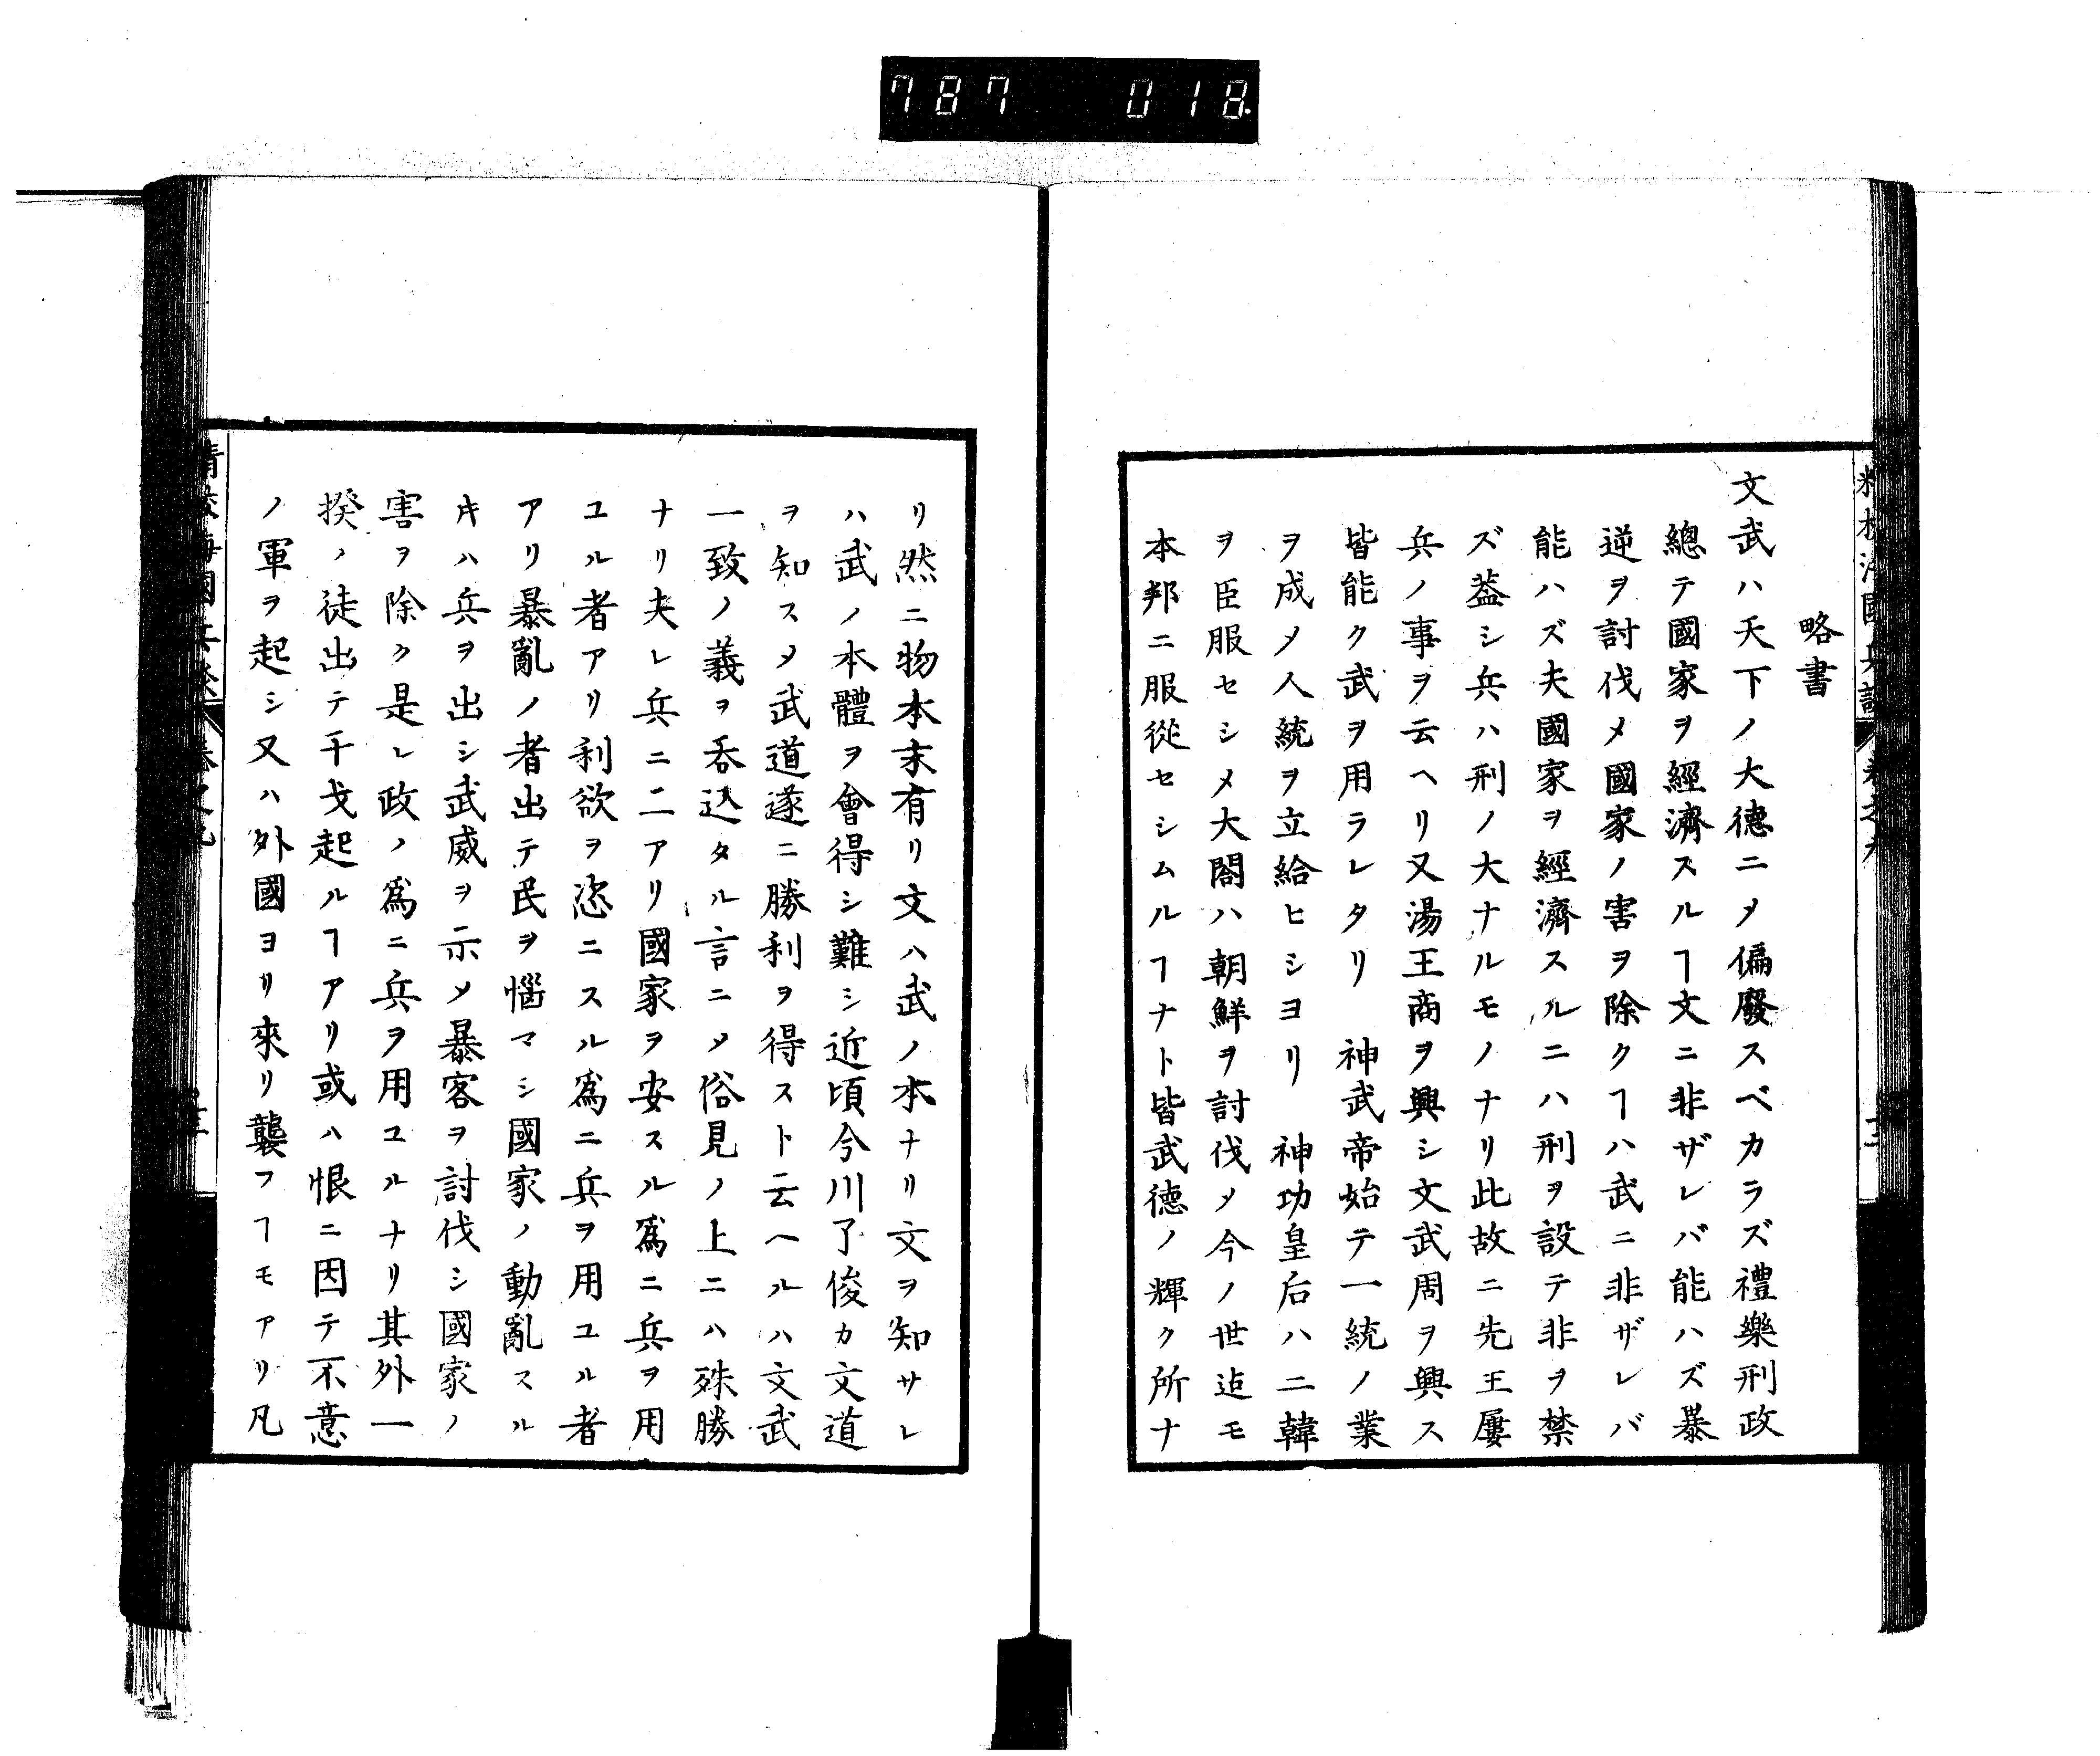 787 018
略書
文武ハ天下ノ大德ニ〆偏廢スベカラズ禮樂刑政
總テ國家ヲ經濟スルヿ文ニ非ザレバ能ハズ暴
逆ヲ討伐〆國家ノ害ヲ除クヿハ武ニ非ザレバ
能ハズ夫國家ヲ經濟スルニハ刑ヲ設テ非ヲ禁
ズ葢シ兵ハ刑ノ大ナルモノナリ此故ニ先王屢
兵ノ事ヲ云ヘリ又湯王商ヲ興シ文武周ヲ興ス
皆能ク武ヲ用ラレタリ 神武帝始テ一統ノ業
ヲ成〆人統ヲ立給ヒシヨリ 神功皇后ハ二韓
ヲ臣服セシメ大閤ハ朝鮮ヲ討伐〆今ノ世迠モ
本邦ニ服從セシムルヿナト皆武德ノ輝ク所ナ
リ然ニ物本末有リ文ハ武ノ本ナリ文ヲ知サレ
ハ武ノ本體ヲ會得シ難シ近頃今川了俊カ文道
ヲ知ス〆武道遂ニ勝利ヲ得スト云ヘルハ文武
一致ノ義ヲ呑込タル言ニ〆俗見ノ上ニハ殊勝
ナリ夫レ兵ニ二アリ國家ヲ安スル爲ニ兵ヲ用
ユル者アリ利欲ヲ恣ニスル爲ニ兵ヲ用ユル者
アリ暴亂ノ者出テ民ヲ惱マシ國家ノ動亂スル
キハ兵ヲ出シ武威ヲ示〆暴客ヲ討伐シ國家ノ
害ヲ除ク是レ政ノ爲ニ兵ヲ用ユルナリ其外一
揆ノ徒出テ干戈起ルヿアリ或ハ恨ニ因テ不意
ノ軍ヲ起シ又ハ外國ヨリ來リ襲フヿモアリ凡